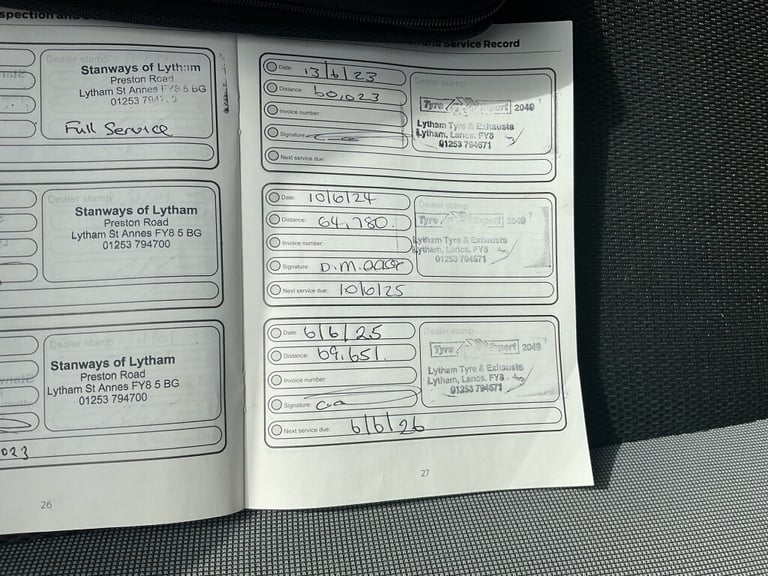 Dealer stamp
Stanways of Lytham
Preston Road
Lytham St Annes FY8 5 BG
01253
Full Service
Dealer stamp
Stanways of Lytham
Preston Road
Lytham St Annes FY8 5 BG
01253 794700
Dealer stamp
Stanways of Lytham
Preston Road
Lytham St Annes FY8 5 BG
01253 794700
023
26
and Service Record
Date: 13/6/23
Distance: 60,023
Invoice number:
Signature:
Next service due:
Dealer stamp
Tyre 2049
Lytham Tyre & Exhausts
Lytham, Lancs. FY8
01253 794671
Date: 10/6/24
Distance: 64,780.
Invoice number:
Signature:
Next service due: 10/6/25
Dealer stamp
Tyre 2049
Lytham Tyre & Exhausts
Lytham, Lancs. FY8
01253 794671
Date: 6/6/25
Distance: 69,651.
Invoice number:
Signature:
Next service due: 6/6/26
Dealer stamp
Tyre 2049
Lytham Tyre & Exhausts
Lytham, Lancs. FY8
01253 794671
27